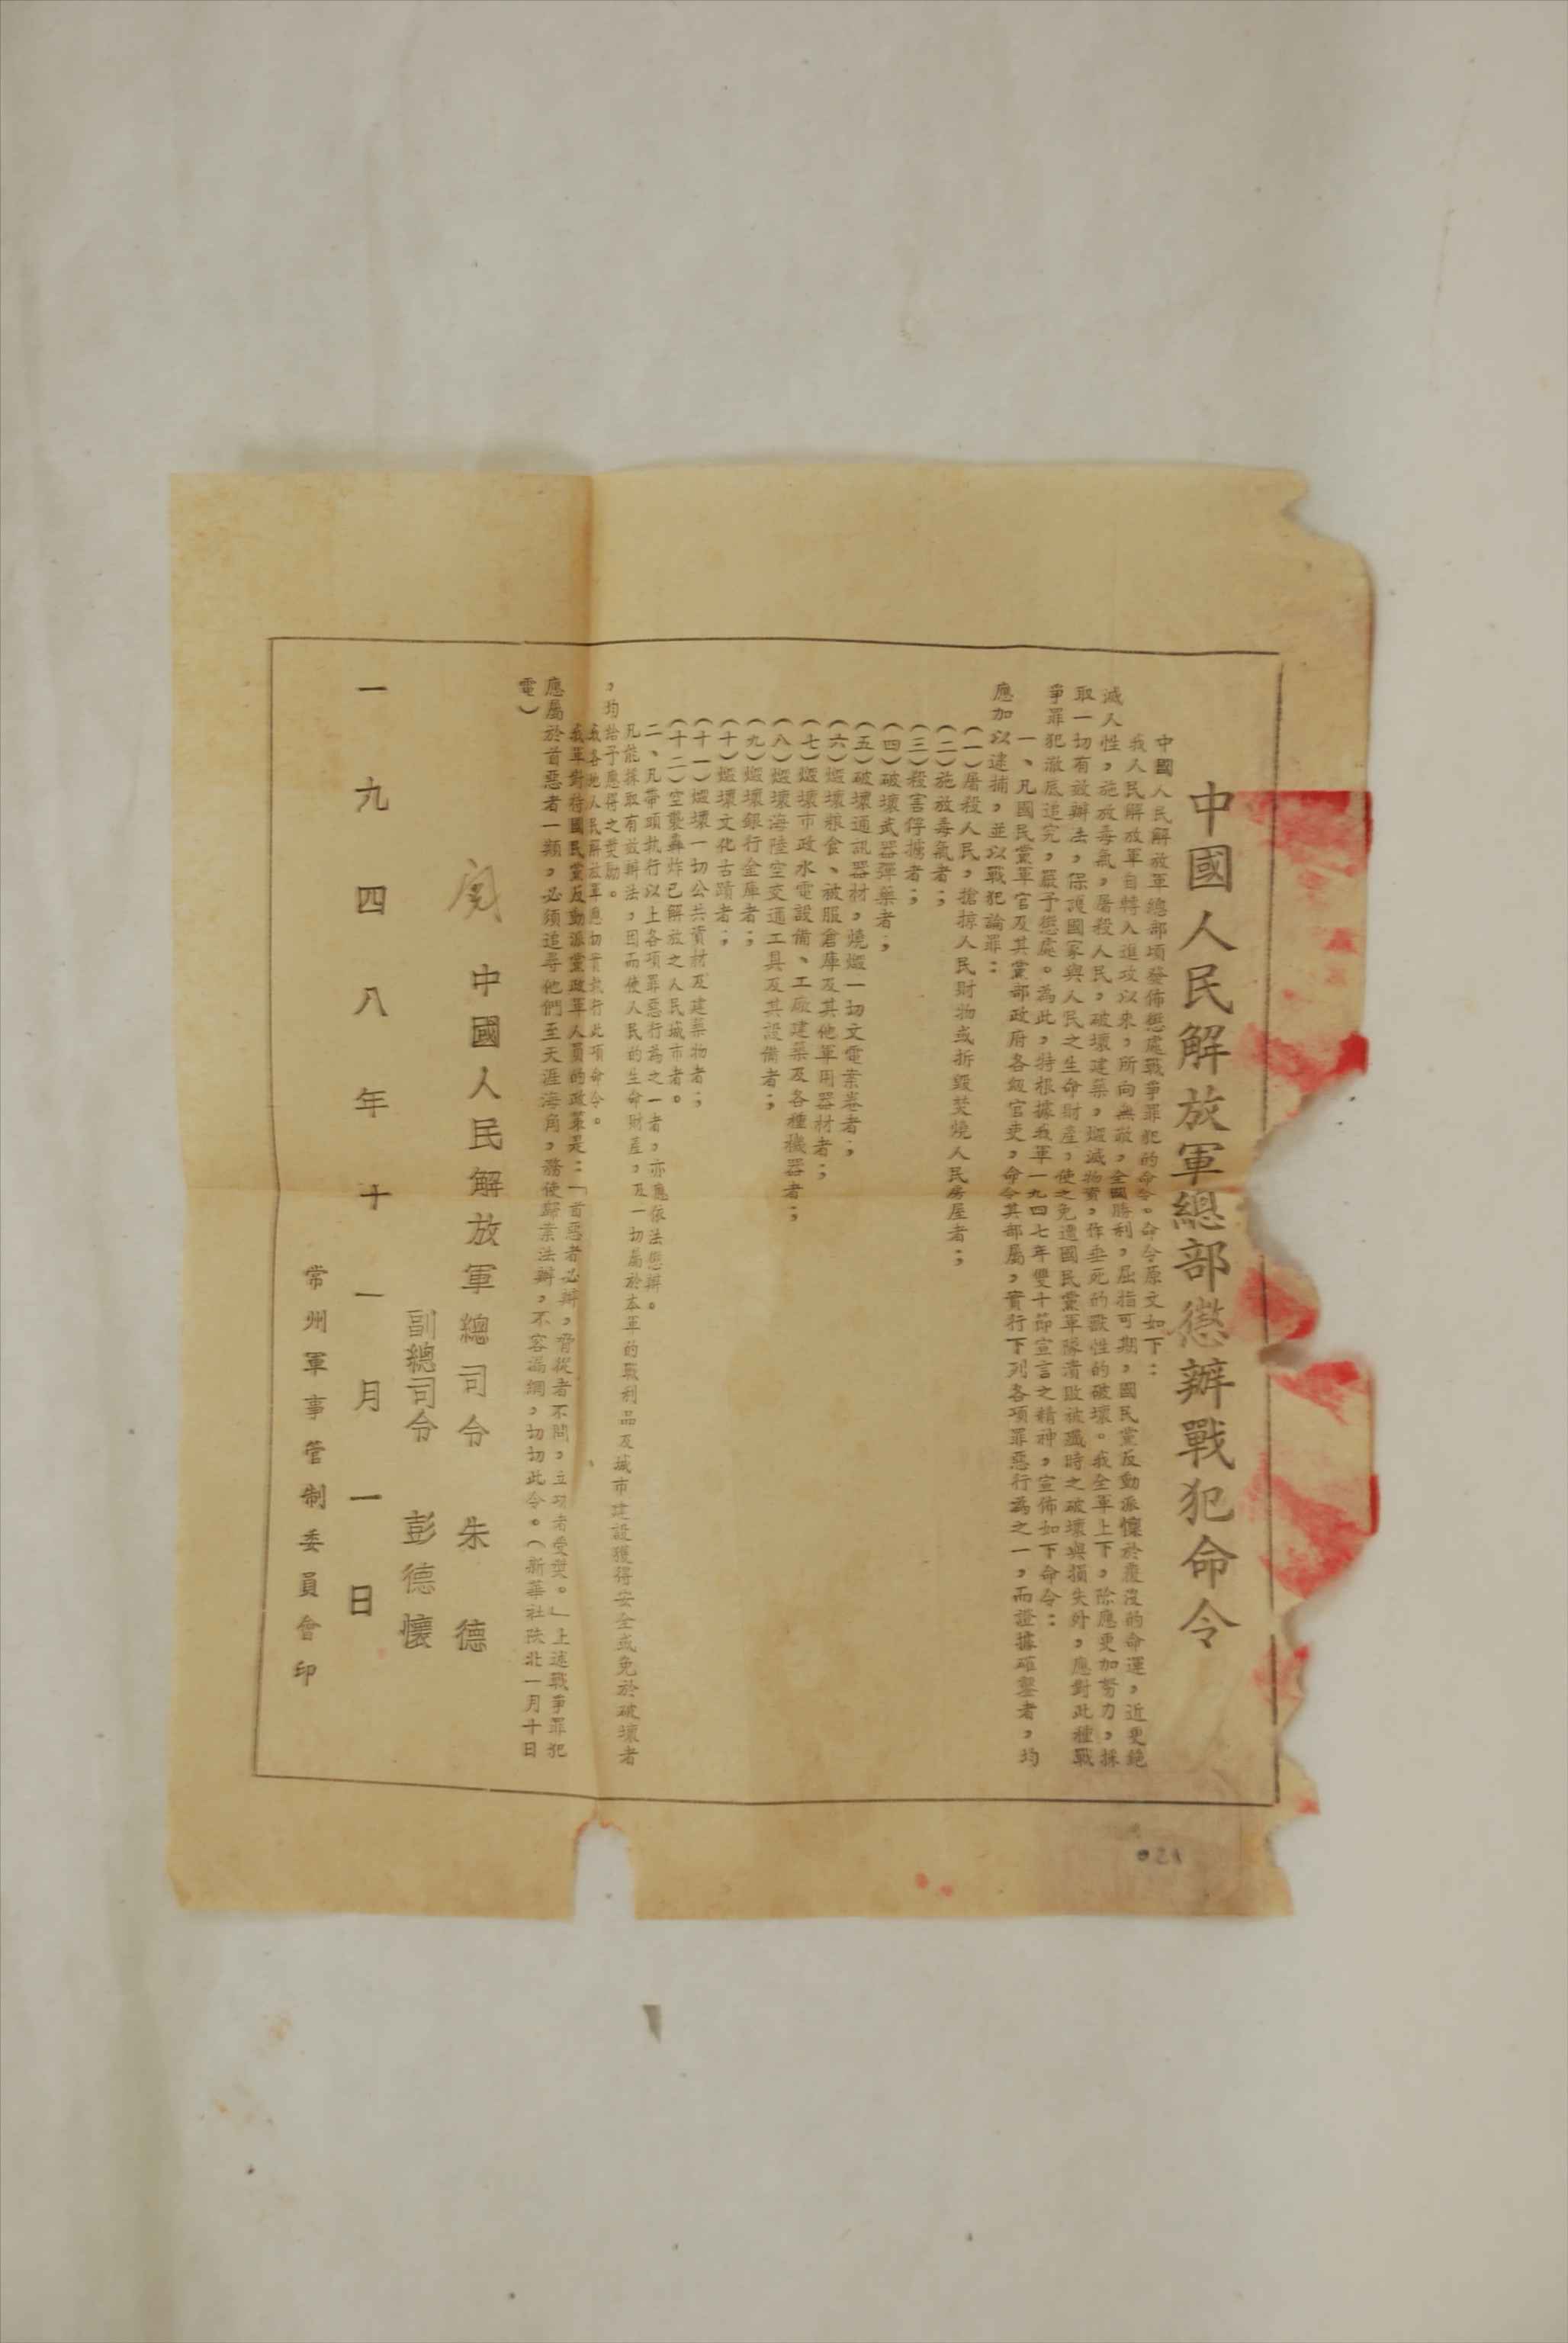 中國人民解放軍總部懲辦戰犯命令
中國人民解放軍總部頃發佈懲處戰爭罪犯的命令。命令原文如下：
我人民解放軍自轉入進攻以來，所向無敵，全國勝利，屈指可期，國民黨反動派懍於覆沒的命運，近更絕
滅人性，施放毒氣，屠殺人民，破壞建築，燬滅物資，作垂死的獸性的破壞。我全軍上下，除應更加努力，採
取一切有效辦法，保護國家與人民之生命財產，使之免遭國民黨軍隊潰敗被殲時之破壞與損失外，應對此種戰
爭罪犯澈底追究，嚴予懲處。為此，特根據我軍一九四七年雙十節宣言之精神，宣佈如下命令：
一、凡國民黨軍官及其黨部政府各級官吏，命令其部屬，實行下列各項罪惡行為之一，而證據確鑿者，均
應加以逮捕，並以戰犯論罪：
（一）屠殺人民，搶掠人民財物或拆毀焚燒人民房屋者；
（二）施放毒氣者；
（三）殺害俘擄者；
（四）破壞武器彈藥者；
（五）破壞通訊器材，燒燬一切文電案卷者；
（六）燬壞粮食、被服倉庫及其他軍用器材者；
（七）燬壞市政水電設備、工廠建築及各種機器者；
（八）燬壞海陸空交通工具及其設備者；
（九）燬壞銀行金庫者；
（十）燬壞文化古蹟者；
（十一）燬壞一切公共資材及建築物者；
（十二）空襲轟炸已解放之人民城市者。
二、凡帶頭執行以上各項罪惡行為之一者，亦應依法懲辦。
凡能採取有效辦法，因而使人民的生命財產，及一切屬於本軍的戰利品及城市建設獲得安全或免於破壞者
，均給予應得之獎勵。
我各地人民解放軍應切實執行此項命令。
我軍對待國民黨反動派黨政軍人員的政策是：「首惡者必辦，脅從者不問，立功者受獎。」上述戰爭罪犯
應屬於首惡者一類，必須追尋他們至天涯海角，務使歸案法辦，不容漏網，切切此令。（新華社陝北一月十日
電）
中國人民解放軍總司令 朱德
副總司令 彭德懷
一九四八年十一月一日
常州軍事管制委員會印
021